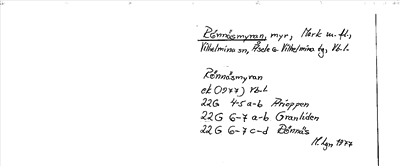 Rönnåsmyran, myr, Mark m. fl.,
Vilhelmina sn, Åsele o Vilhelmina tg, Vb.l.
Rönnåsmyran
ek (1977) Vb.l
22G 4-5 a-b Arioppen
22G 6-7 a-b Granliden
22G 6-7 c-d Rönnås
M. Lgn 1977